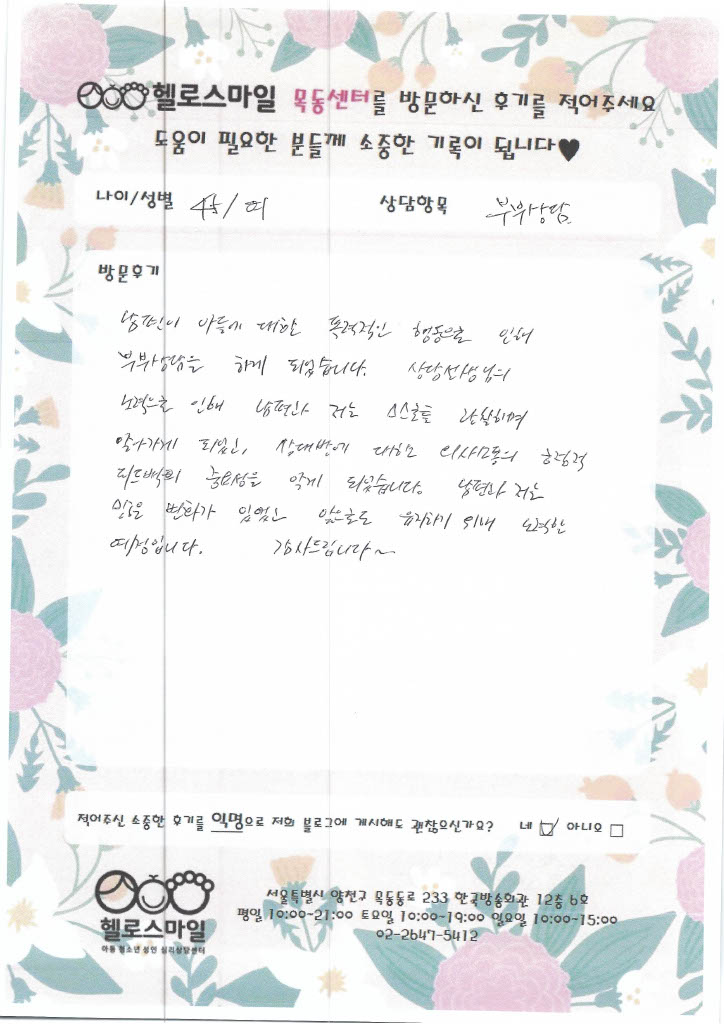 헬로스마일 목동센터를 방문하신 후기를 적어주세요
도움이 필요한 분들께 소중한 기록이 됩니다♥
나이/성별 / 여 상담항목 부부상담
방문후기
남편이 아들에 대한 폭력적인 행동으로 인해
부부상담을 하게 되었습니다. 상담선생님의
노력으로 인해 남편과 저는 스스로를 관찰하며
알아가게 되었고, 상대방에 대한 의사소통의 긍정적
피드백의 중요성을 알게 되었습니다. 남편과 저는
많은 변화가 있었고 앞으로도 유지하기 위해 노력할
예정입니다. 감사드립니다~
적어주신 소중한 후기를 익명으로 저희 블로그에 게시해도 괜찮으신가요? 네 아니오
헬로스마일
아동 청소년 성인 심리상담센터
서울특별시 양천구 목동동로 233 한국방송회관 12층 6호
평일 10:00-21:00 토요일 10:00-19:00 일요일 10:00-15:00
02-2647-5412